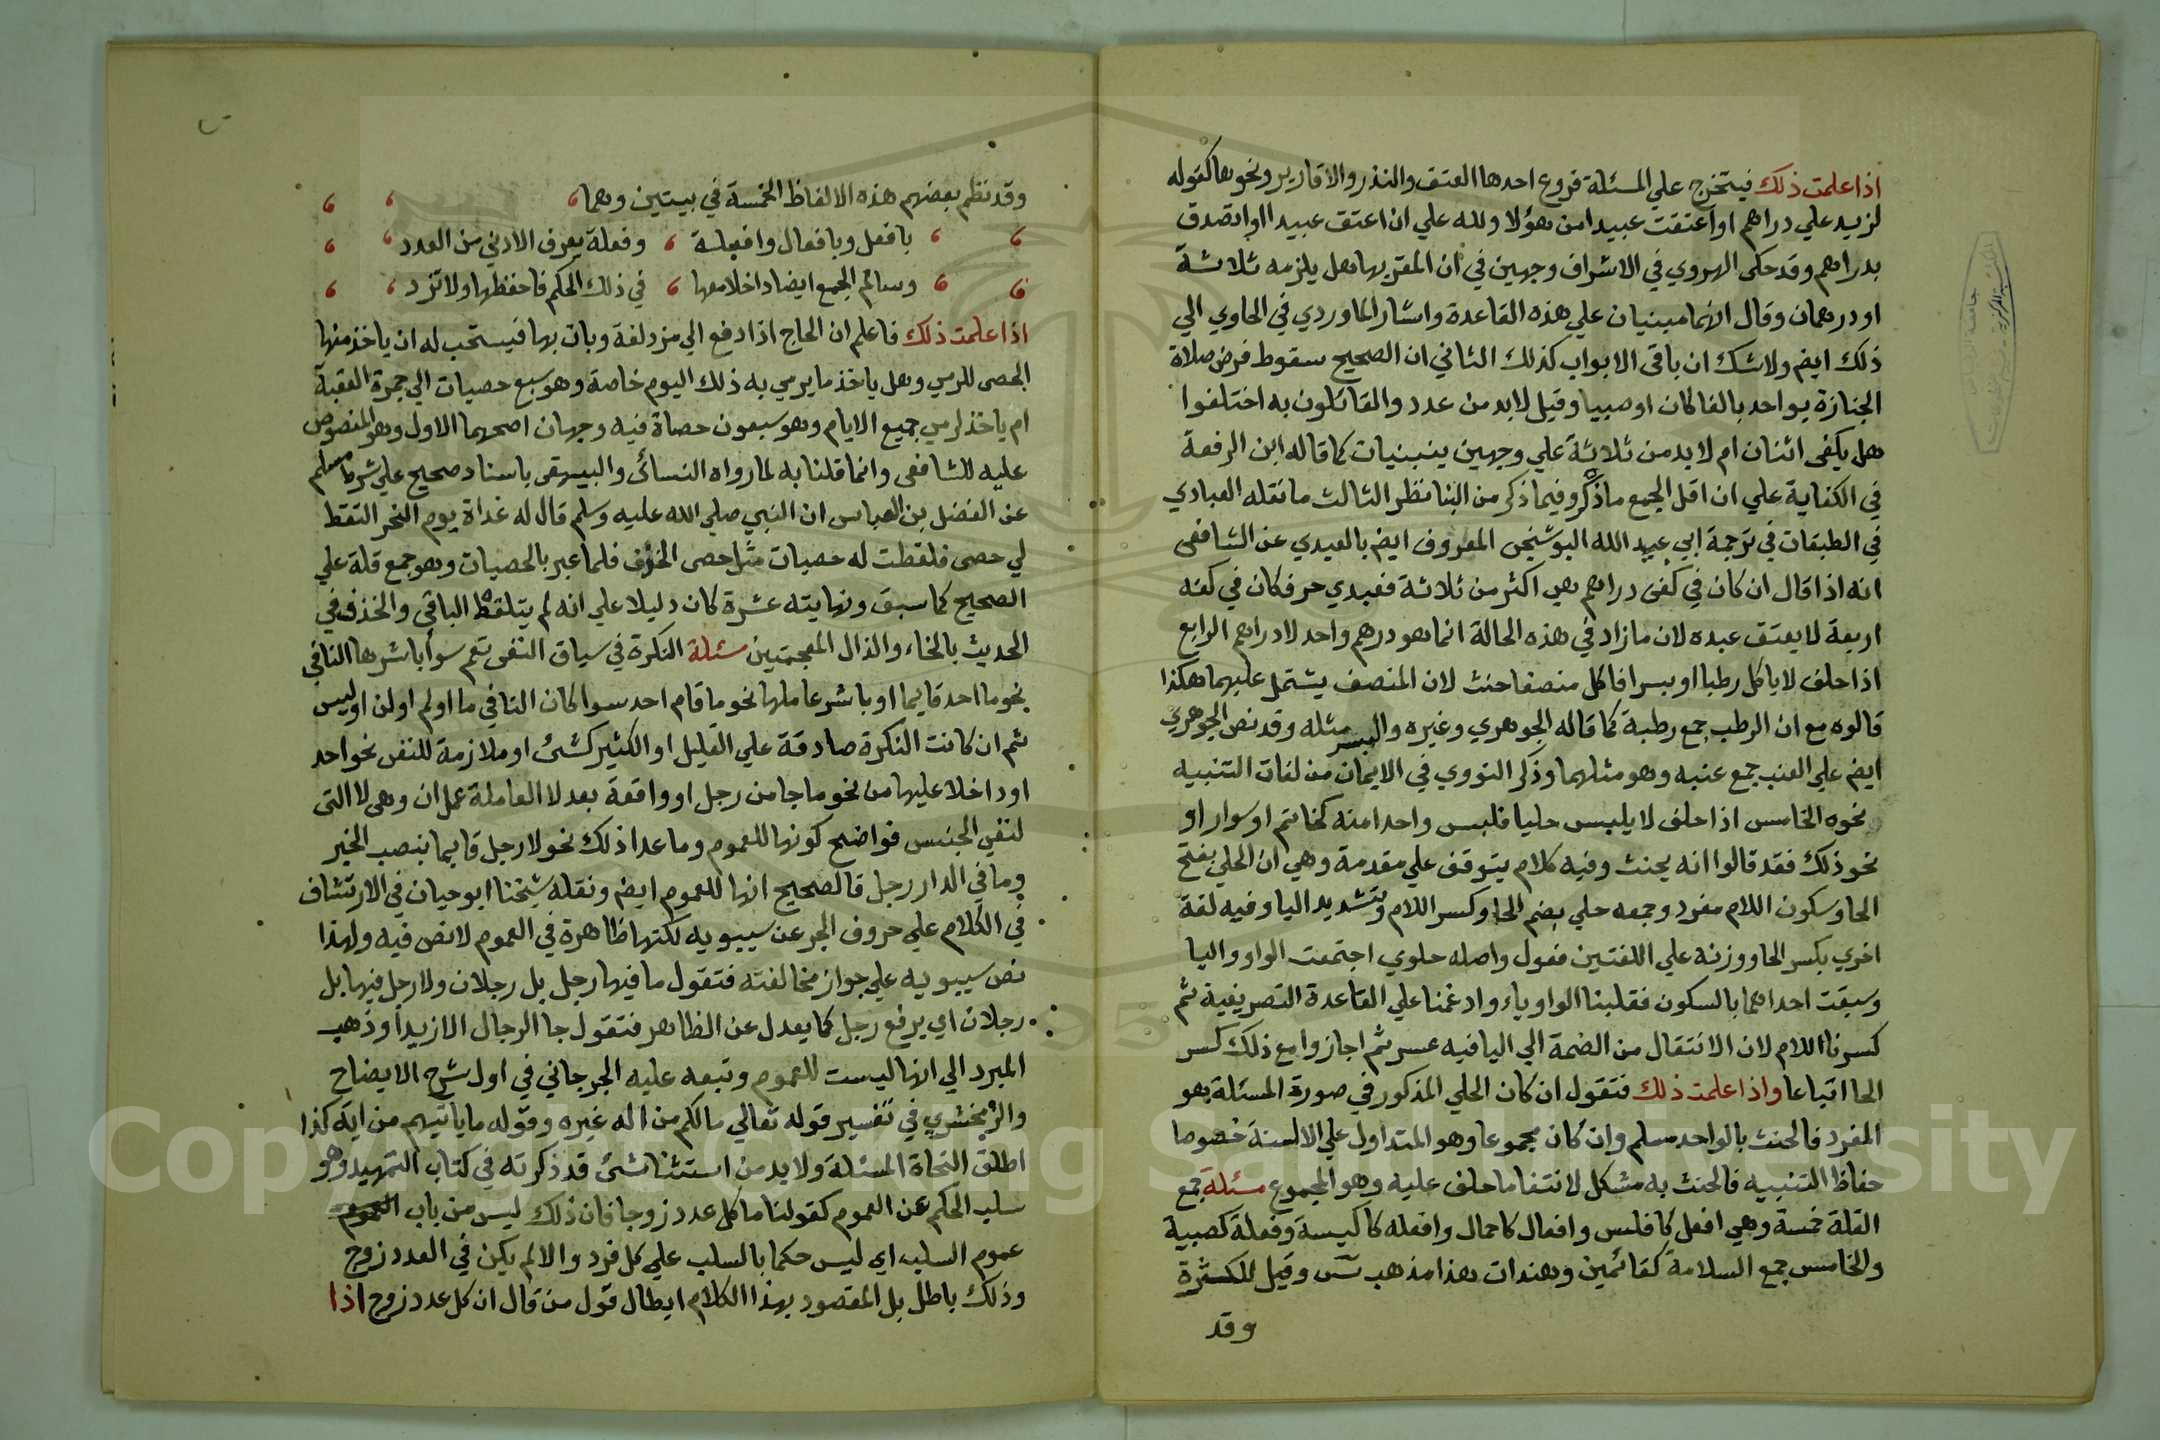 اذا علمت ذلك فيتخرج علي المسئلة فروع احدها العتق والنذر والاقارير ونحوها كقوله
لزيد علي دراهم او اعتقت عبيدا من هؤلا ولله علي ان اعتق عبيدا او اتصدق
بدراهم وقد حكى الهروي في الاشراف وجهين في ان المقر بها هل يلزمه ثلاثة
او درهمان وقال انهما مبنيان علي هذه القاعدة واشار الماوردي في الحاوي الي
ذلك ايضم ولا شك ان باقى الابواب كذلك الثاني ان الصحيح سقوط فرض صلاة
الجنازة بواحد بالغا كان او صبيا وقيل لابد من عدد والقائلون به اختلفوا
هل يكفى اثنان ام لابد من ثلاثة علي وجهين ينبنيات كما قاله ابن الرفعة
في الكفاية علي ان اقل الجمع ماذا وفيما ذكر من البنا نظر الثالث ما نقله العبادي
في الطبقات في ترجمة ابي عبيد الله البوشنجي المعروف ايضم بالعبدي عن الشافعى
انه اذا قال ان كان في كفى دراهم هي اكثر من ثلاثة فعبدي حر فكان في كفه
اربعة لا يعتق عبده لان ما زاد في هذه الحالة انما هو درهم واحد لا دراهم الرابع
اذا حلف لا ياكل رطبا او بسرا فاكل منصفا حنث لان المنصف يشتمل عليهما هكذا
قالوه مع ان الرطب جمع رطبة كما قاله الجوهري وغيره والبسر مثله وقد نص الجوهري
ايضم علي العنب جمع عنبه وهو مثلهما وذكر النووي في الايمان من لغات التنبيه
نحوه الخامس اذا حلف لا يلبس حليا فلبس واحدا منه كخاتم او سوار او
نحو ذلك فقد قالوا انه يحنث وفيه كلام يتوقف علي مقدمة وهي ان الحلي بفتح
الحا وسكون اللام مفرد وجمعه حلي بضم الحا وكسر اللام وتشديد اليا وفيه لغة
اخري بكسر الحا ووزنه علي اللغتين فعول واصله حلوي اجتمعت الواو واليا
وسبقت احداهما بالسكون فقلبنا الواو ياء وادغمنا علي القاعدة التصريفية ثم
كسرنا اللام لان الانتقال من الضمة الي اليا فيه عسر ثم اجازوا مع ذلك كسر
الحا اتباعا واذا علمت ذلك فتقول ان كان الحلي المذكور في صورة المسئلة هو
المفرد فالحنث بالواحد مسلم وان كان مجموعا وهو المتداول علي الالسنة خصوصا
حفاظ التنبيه فالحنث به مشكل لانتفا ما حلف عليه وهو المجموع مسئلة جمع
القلة خمسة وهي افعل كافلس وافعال كاحمال وافعله كاكيسة وفعلة كصبية
والخامس جمع السلامة كقائمين وهندات هذا مذهب س وقيل للكثرة
وقد
وقد نظم بعضهم هذه الالفاظ الخمسة في بيتين وهما
بافعل وبافعال وافعلة وفعلة يعرف الادني من العدد
وسالم الجمع ايضا داخلا معها في ذلك الحكم فاحفظها ولا تزد
اذا علمت ذلك فاعلم ان الحاج اذا دفع الي مزدلفة وبات بها فيستحب له ان ياخذ منها
الحصى للرمي وهل ياخذ ما يرمي به ذلك اليوم خاصة وهو سبع حصيات الي جمرة العقبة
ام ياخذ لرمي جميع الايام وهو سبعون حصاة فيه وجهان اصحهما الاول وهو المنصوص
عليه للشافعى وانما قلنا به لما رواه النسائى والبيهقى باسناد صحيح علي شرط مسلم
عن الفضل بن العباس ان النبي صلي الله عليه وسلم قال له غداة يوم النحر التقط
لي حصى فلقطت له حصيات مثل حصى الخذف فلما عبر بالحصيات وهو جمع قلة علي
الصحيح كما سبق ونهايته عشرة كان دليلا علي انه لم يتلقط الباقي والخذف في
الحديث بالخاء والذال المعجمتين مسئلة النكرة في سياق النفى تعم سوا باشرها النافي
نحو ما احد قايما او باشر عاملها نحو ما قام احد سوا كان النافي ما او لم او لن او ليس
ثم ان كانت النكرة صادقة علي القليل او الكثير كشئ او ملازمة للنفى نحو احد
او داخلا عليها من نحو ما جا من رجل او واقعة بعد لا العاملة عمل ان وهى لا التى
لنفي الجنس فواضح كونها للعموم وما عدا ذلك نحو لا رجل قايما بنصب الخبر
وما في الدار رجل فالصحيح انها للعموم ايضم ونقله شيخنا ابو حيان في الارتشاف
في الكلام علي حروف الجر عن سيبويه لكنها ظاهرة في العموم لا نص فيه ولهذا
نص سيبويه علي جواز مخالفته فتقول ما فيها رجل بل رجلان ولا رجل فيها بل
رجلان اي يرفع رجل كما يعدل عن الظاهر فتقول جا الرجال الا زيدا وذهب
المبرد الي انها ليست للعموم وتبعه عليه الجرجاني في اول شرح الايضاح
والزمخشري في تفسير قوله تعالي مالكم من اله غيره وقوله ما ياتيهم من ايه كذا
اطلق النحاة المسئلة ولابد من استثنا شئ قد ذكرته في كتاب التمهيد وهو
سلب الحكم عن العموم كقولنا ما كل عدد زوجا فان ذلك ليس من باب
عموم السلب اي ليس حكما بالسلب علي كل فرد والا لم يكن في العدد زوج
وذلك باطل بل المقصود بهذا الكلام ابطال قول من قال ان كل عدد زوج اذا
Copyright © King Saud University